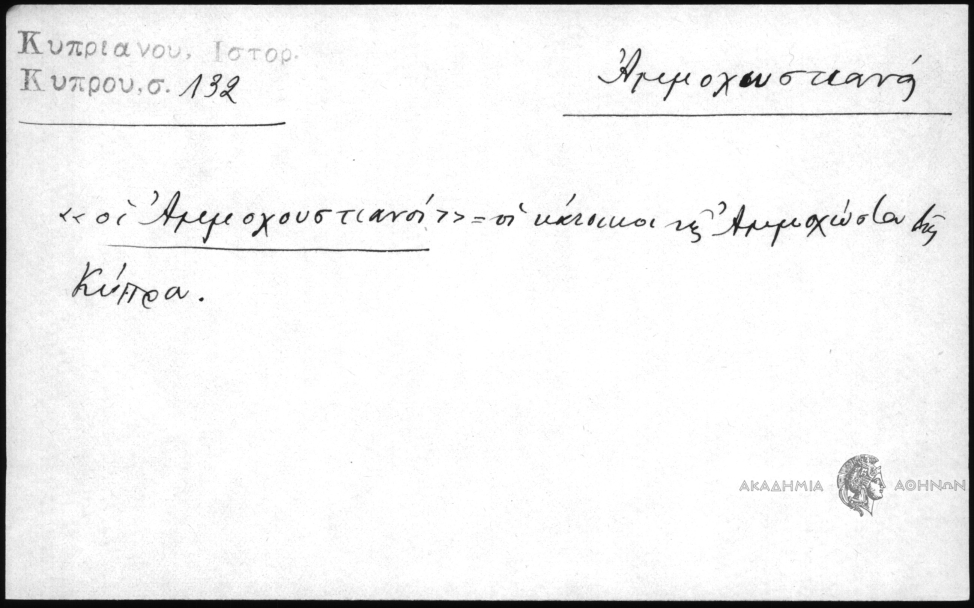 Κυπριανου, Ιστορ.
Κυπρου,σ. 132
Ἀμμοχουστιανός
«οἱ Ἀμμοχουστιανοί» = οἱ κάτοικοι τῆς Ἀμμοχώστου τῆς
Κύπρου.
ΑΚΑΔΗΜΙΑ ΑΘΗΝΩΝ